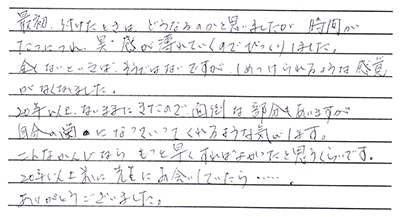 最初、付けたときは、どうなるのかと思いましたが、時間が
たつにつれ、異和感が薄れていくのでびっくりしました。
全くないといえば、そうではないですが、しめつけられるような感覚
がなくなりました。
20年以上、ないままにきたので、面倒な部分もありますが
自分の歯になっていってくれるような気がします。
こんなかんじなら、もっと早くすればよかったと思うくらいです。
20年以上前に先生にお会いしていたら……。
ありがとうございました。